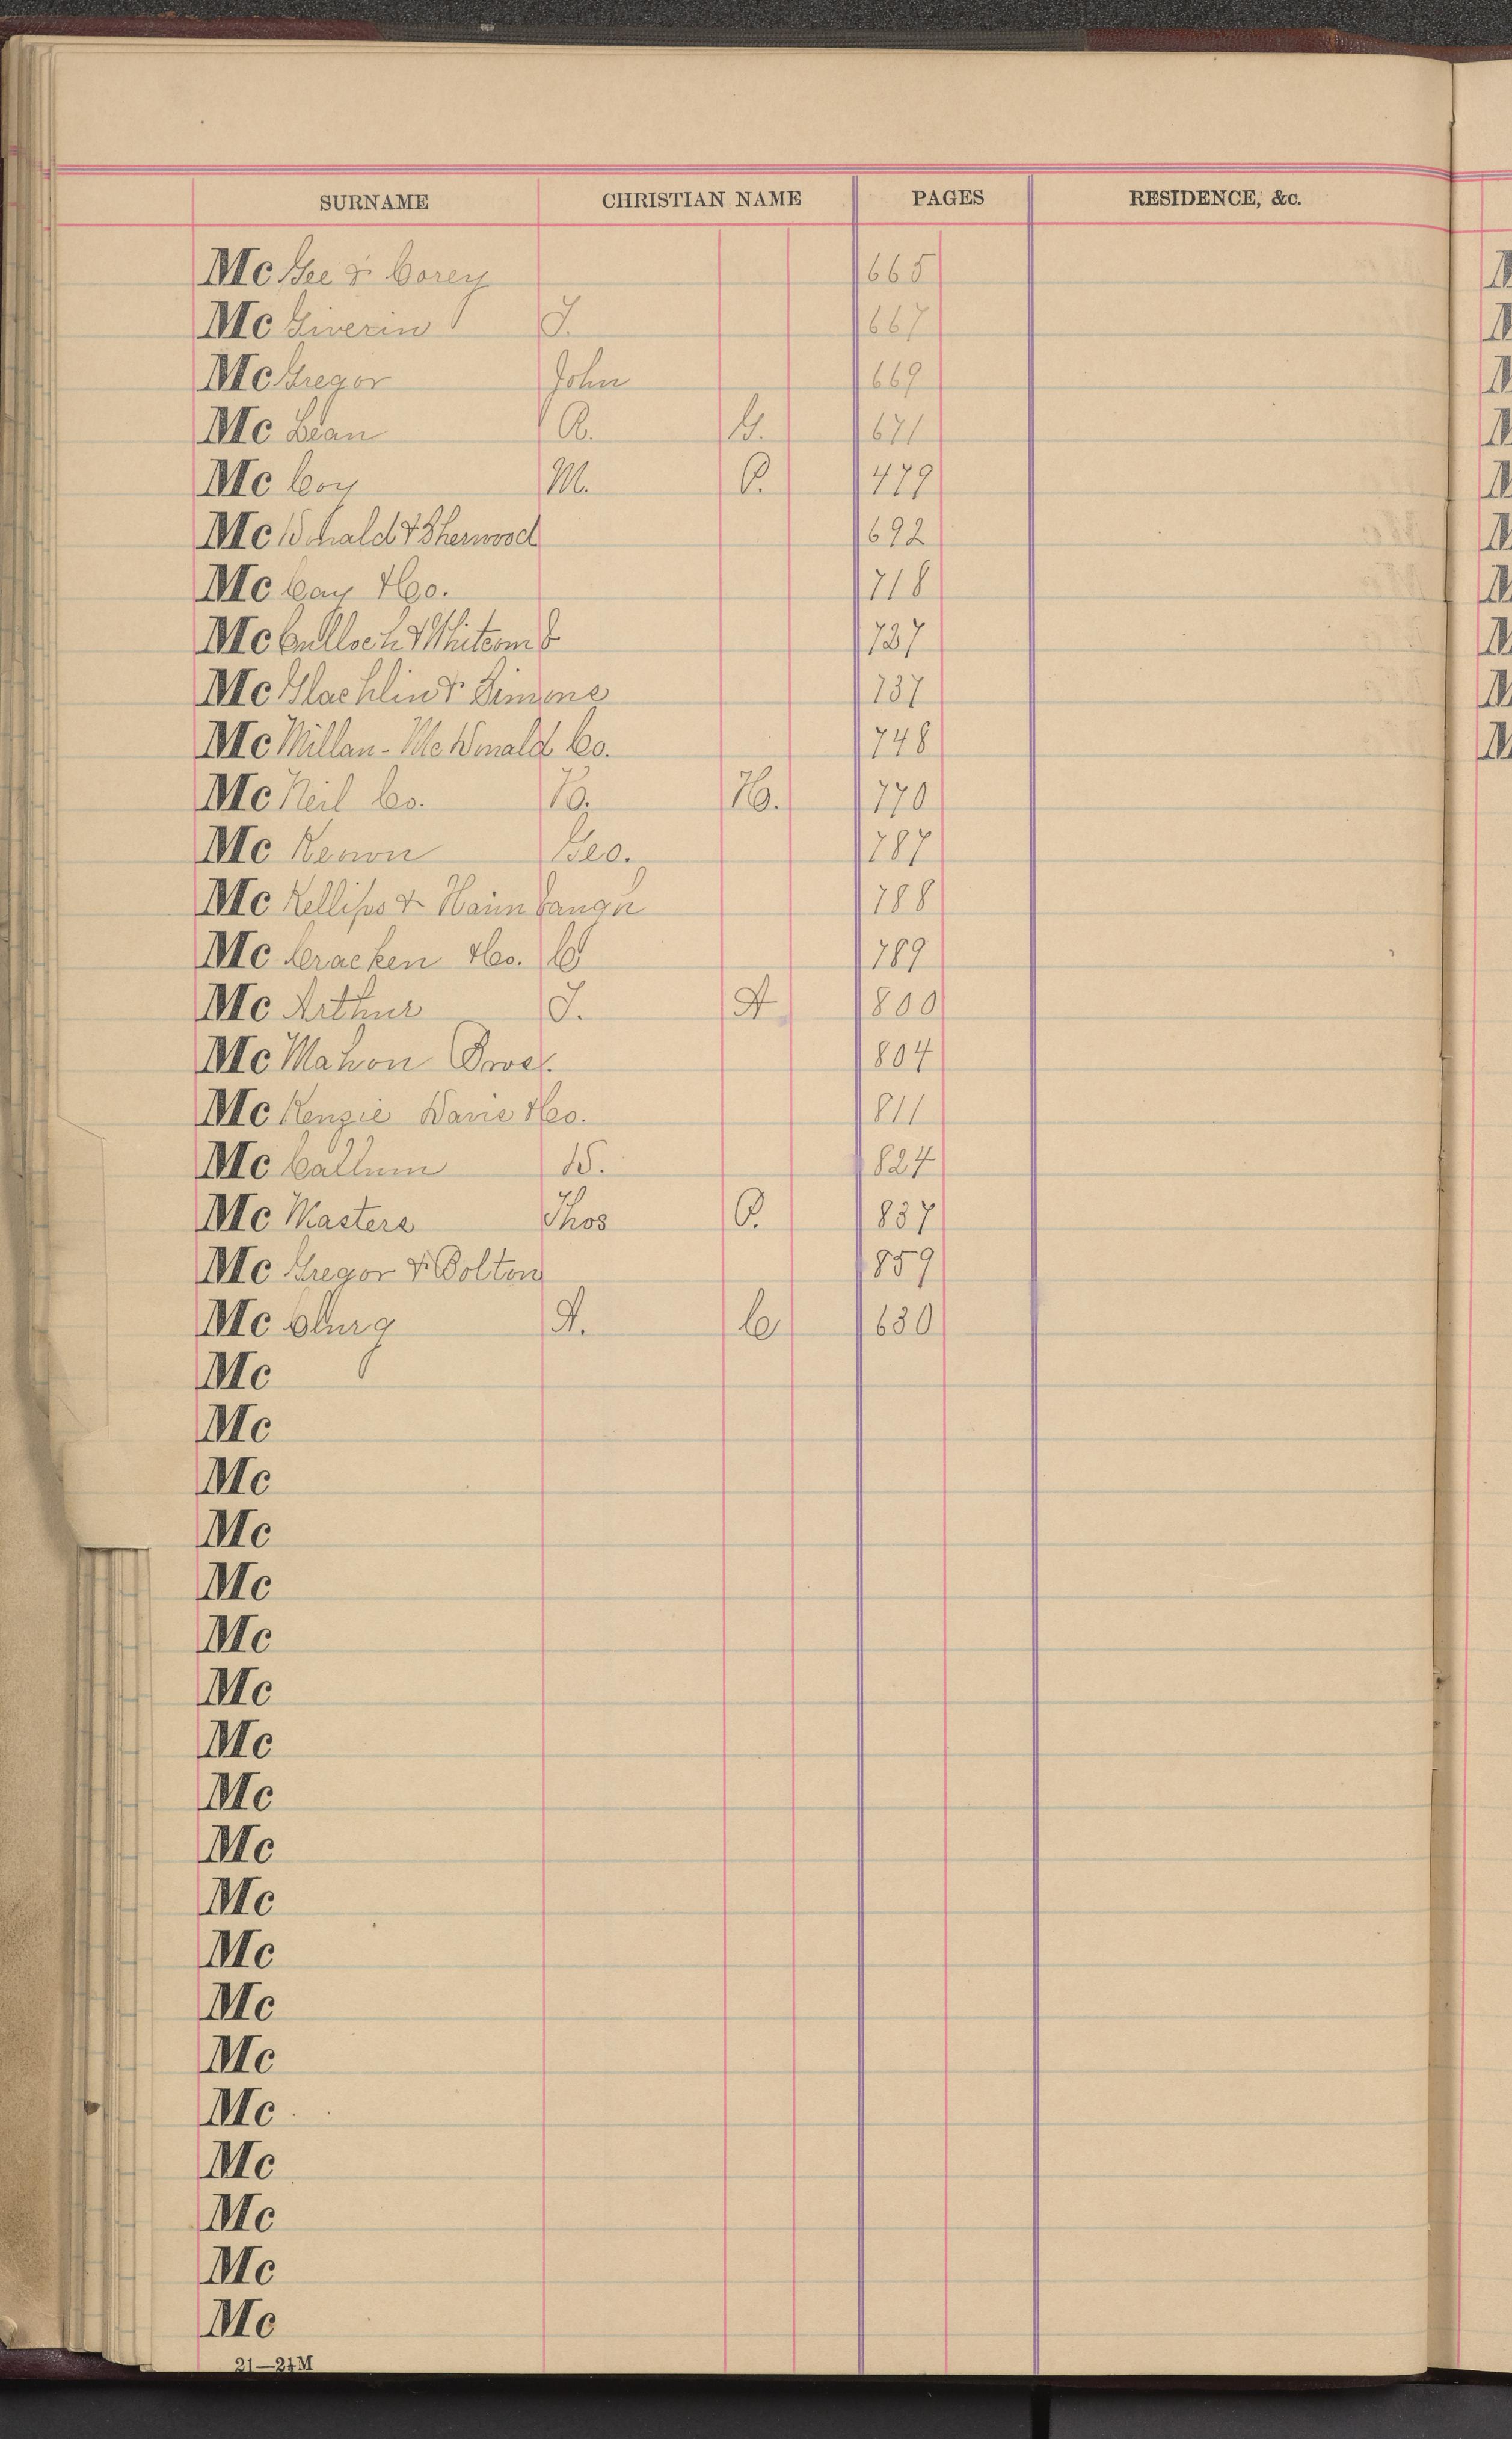 SURNAME CHRISTIAN NAME PAGES RESIDENCE, &c.
McGee & Corey 665
McGiverin J. 667
McGregor John 669
McLean R. G. 671
McCoy M. P. 479
McDonald & Sherwood 692
McCay & Co. 718
McCulloch & Whitcomb 737
McGlachlin & Simons 737
McMillan-McDonald Co. 748
McNeil Co. H. 770
McKeown Geo. 787
McKellips & 788
McCracken & Co. C 789
McArthur J. A 800
McMahon Bros. 804
McKenzie Davis & Co. 811
McCallum D. 824
McMasters Thos P. 837
McGregor & Bolton 859
McClurg A. C 680
Mc
Mc
Mc
Mc
Mc
Mc
Mc
Mc
Mc
Mc
Mc
Mc
Mc
Mc
Mc
Mc
Mc
Mc
Mc
21—24M